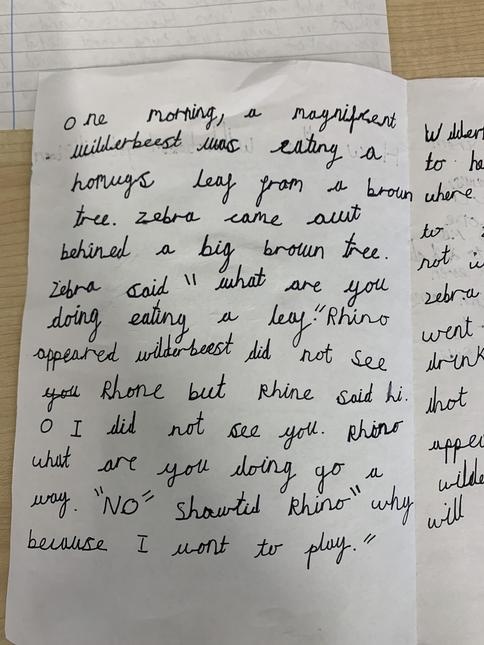 One morning, a magnificent
wilderbeest was eating a
homugs leaf from a brown
tree. Zebra came auut
behined a big brown tree.
Zebra said " what are you
doing eating a leaf." Rhino
appeared wilderbeest did not see
you Rhone but Rhine said hi.
O I did not see you. Rhino
what are you doing go a
way. "NO" Showtid Rhino" why
because I wont to play."
Wilder
to ha
where
to
not i
zebra
went
drink
thot
appe
wilde
will